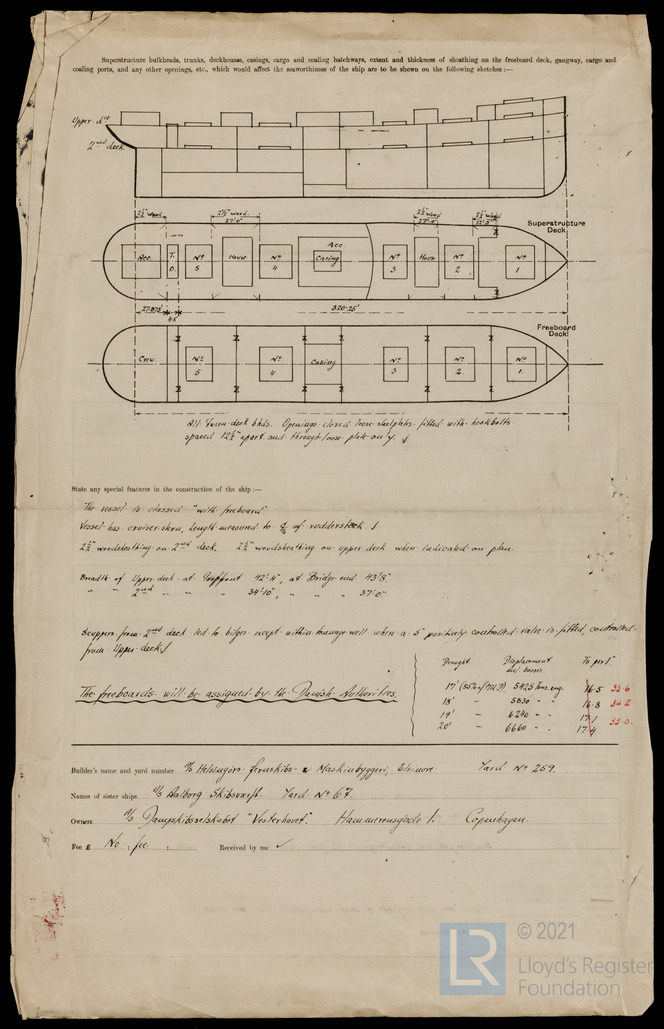 Superstructure bulkheads, trunks, deckhouses, casings, cargo and coaling hatchways, extent and thickness of sheathing on the freeboard deck, gangway, cargo and
coaling ports, and any other openings, etc., which would affect the seaworthiness of the ship are to be shewn on the following sketches :—
Upper dk
2nd deck
2½" wood 2½" wood 2½" wood 2½" wood
27'0" 27'0"
Superstructure
Deck
Acc. T. O. No 5 House No 4 Acc. Casing No 3 House No 2 No 1
27.875' 4.5' 320.25'
Freeboard
Deck
Crew No 5 No 4 Casing No 3 No 2 No 1
All Tween deck bhds. Openings closed loose steelplates fitted with hookbolts
spaced 12½" apart and through loose plate only
State any special features in the construction of the ship :—
The vessel is classed "with freeboard"
Vessel has cruiser stern, length measured to ℄ of rudderstock.
2½" woodsheathing on 2nd deck. 2½" woodsheathing on upper deck when indicated on plan.
Breadth of Upper deck at Poopfront 42'4", at Bridge end 43'8"
" " 2nd " " " 39'10", " " " 37'0"
Scuppers from 2nd deck led to bilges except within tonnage well when a 5" positively controlled valve is fitted, controlled
from Upper deck
Draught Displacement incl. bosses To per 1"
17' 5425 Tons. eng. 16.5 33.6
18' - 5830 - - 16.8 34.2
19' - 6240 - - 17.1
20' - 6660 - - 17.4 35.0
The freeboards will be assigned by the Danish Authorities.
Builder's name and yard number A/S Helsingörs Jernskibs & Maskinbyggeri, Elsinore Yard No 259.
Names of sister ships A/S Aalborg Skibsværft. Yard No 67.
Owners A/S Dampskibsselskabet "Vesterhavet". Hammerensgade 1. Copenhagen.
Fee £ No : fee : Received by me
LR
© 2021
Lloyd's Register
Foundation